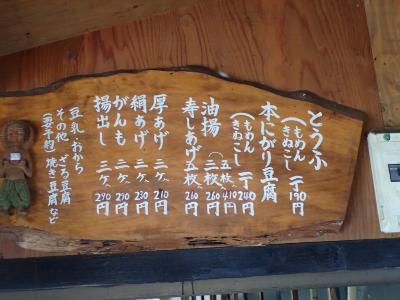 とうふ
(もめん
きぬこし 一丁 190円
本にがり豆腐
(もめん
きぬこし 一丁 240円
油揚 五枚 410円
三枚 260円
寿しあげ 五枚 260円
厚あげ 三ヶ 210円
絹あげ 三ヶ 230円
がんも 三ヶ 290円
揚出し 三ヶ 290円
豆乳 おから
その他 ざる豆腐
(要予約) 焼き豆腐など